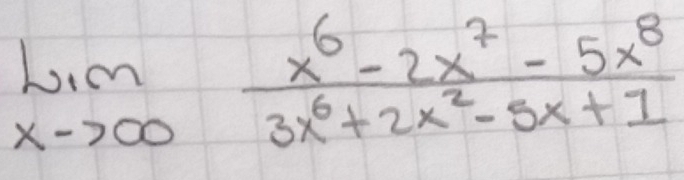 Lim x->∞ (x⁶ - 2x⁷ - 5x⁸)/(3x⁶ + 2x² - 5x + 1)